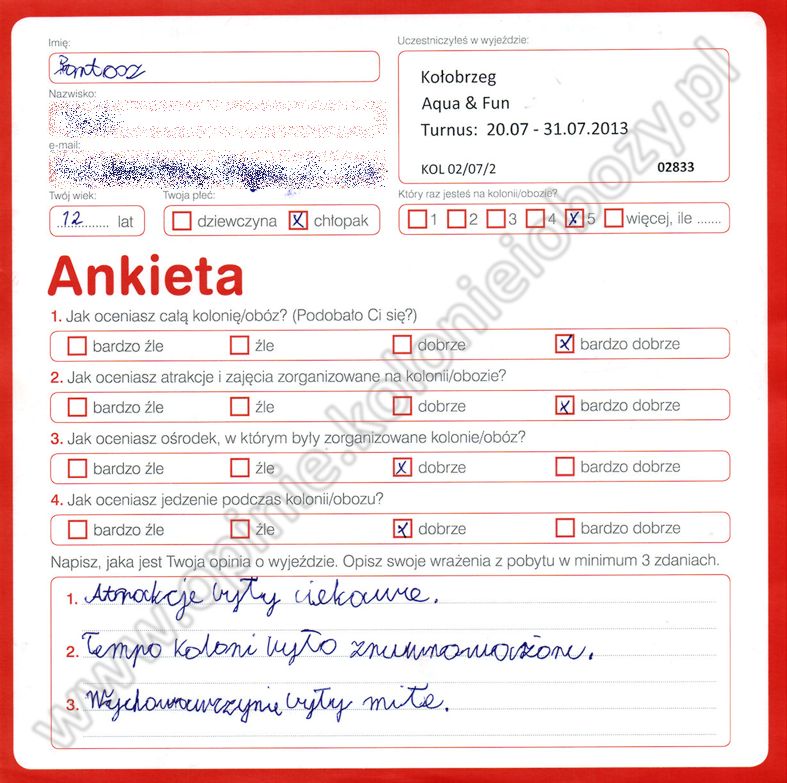 Imię:
Bartosz
Uczestniczyłeś w wyjeździe:
Kołobrzeg
Aqua & Fun
Turnus: 20.07 - 31.07.2013
KOL 02/07/2 02833
Nazwisko:
e-mail:
Twój wiek:
12 lat
Twoja płeć:
dziewczyna x chłopak
Który raz jesteś na kolonii/obozie?
1 2 3 4 x 5 więcej, ile .......
Ankieta
1. Jak oceniasz całą kolonię/obóz? (Podobało Ci się?)
bardzo źle źle dobrze x bardzo dobrze
2. Jak oceniasz atrakcje i zajęcia zorganizowane na kolonii/obozie?
bardzo źle źle dobrze x bardzo dobrze
3. Jak oceniasz ośrodek, w którym były zorganizowane kolonie/obóz?
bardzo źle źle x dobrze bardzo dobrze
4. Jak oceniasz jedzenie podczas kolonii/obozu?
bardzo źle źle x dobrze bardzo dobrze
Napisz, jaka jest Twoja opinia o wyjeździe. Opisz swoje wrażenia z pobytu w minimum 3 zdaniach.
1. Atrakcje były ciekawe.
2. Tempo koloni było
3. Wychowawczynie były miłe.
www.opinie.kolonieiobozy.pl